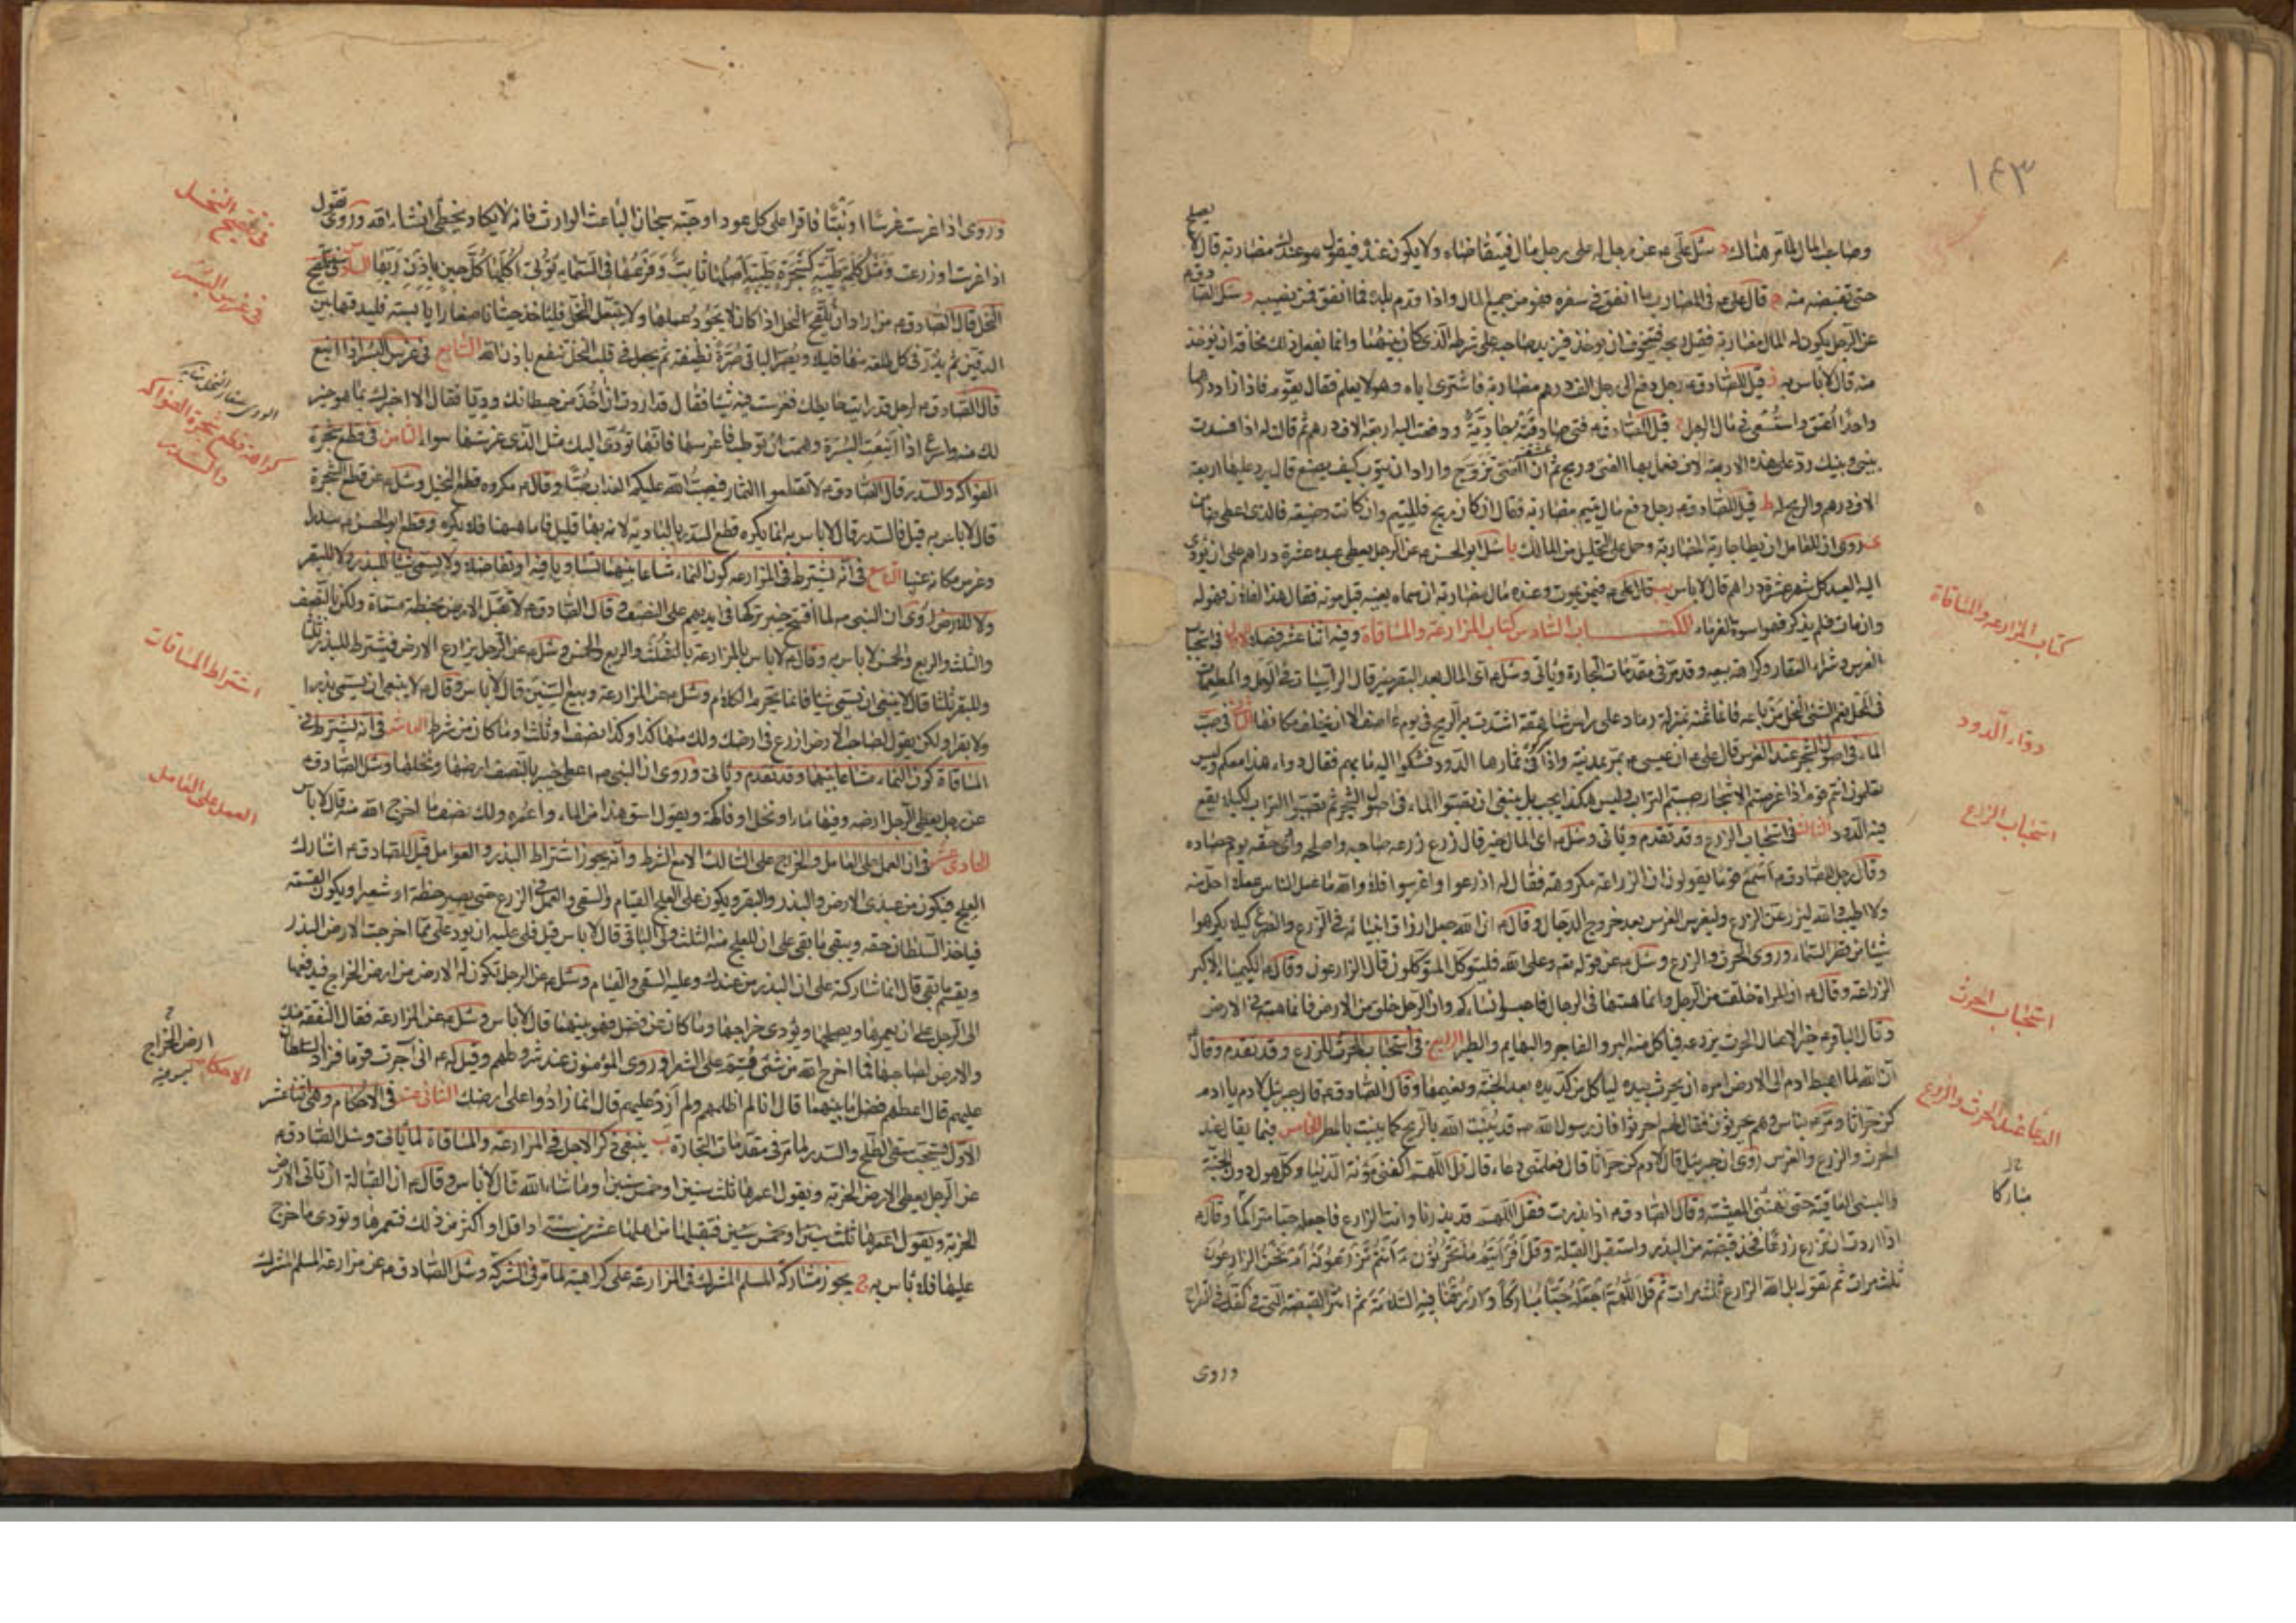 ١٤٣
وصاحب المال المأمر هناك د سئل علي ع عن رجل له على رجل مال فيتقاضاه ولا يكون عنده فيقول هو عندك مضاربة قال لا يصلح
حتى تقبضه منه ه قال علي ع في المضارب ما انفق في سفره فهو من جميع المال واذا قدم بلده فما انفق فمن نصيبه و سئل الصادق ع
عن الرجل يكون له المال مضاربة فيقل ربحه فيتخوف ان يؤخذ فيزيد صاحبه على شرطه الذي كان بينهما وانما يفعل ذلك مخافة ان يؤخذ
منه قال لا باس به ز قيل للصادق ع رجل دفع الى رجل الف درهم مضاربة فاشترى اباه وهو لا يعلم فقال يقوم فاذا زاد درهما
واحدا اعتق واستسعى في مال الرجل ح قيل للصادق ع فتى صادقته جارية ودفعت اليه اربعة الاف درهم ثم قالت له اذا فسدت
بيني وبينك رد علي هذه الاربعة الاف فعمل بها الفتى وربح ثم ان الفتى تزوج واراد ان يتوب كيف يصنع قال يرد عليها اربعة
الاف درهم والربح له ط قيل للصادق ع رجل دفع مال يتيم مضاربة فقال ان كان ربح فلليتيم وان كانت وضيعة فالذي اعطى ضامن
ى وروي ان للعامل ان يطأ جارية المضاربة وحمل على التحليل من المالك يا سئل ابو الحسن ع عن الرجل يعطي عبده عشرة دراهم على ان يؤدي
اليه العبد كل شهر عشرة دراهم قال لا باس يب قال علي ع فيمن يموت وعنده مال مضاربة ان سماه بعينه قبل موته فقال هذا لفلان فهو له
وان مات فلم يذكر فهو اسوة الغرماء الكتاب السادس كتاب المزارعة والمساقاة وفيه اثنا عشر فصلا الاول في استحباب
الغرس وشراء العقار وكراهة بيعه وقد مر في مقدمات التجارة وياتي وسئل ع اي المال بعد البقر خير قال الراسيات في الوحل والمطعمات
في المحل نعم الشيء النخل من باعه فانما ثمنه بمنزلة رماد على راس شاهقة اشتدت به الريح في يوم عاصف الا ان يخلف مكانها الثاني في صب
الماء في اصول الشجر عند الغرس قال علي ع ان عيسى ع مر بمدينة واذا في ثمارها الدود فشكوا اليه ما بهم فقال دواء هذا معكم وليس
تعلمون انتم قوم اذا غرستم الاشجار صببتم التراب وليس هكذا يجب بل ينبغي ان تصبوا الماء في اصول الشجر ثم تصبوا التراب لكيلا يقع
فيه الدود الثالث في استحباب الزرع وقد تقدم وياتي وسئل ع اي المال خير قال زرع زرعه صاحبه واصلحه وادى حقه يوم حصاده
وقال رجل للصادق ع اسمع قوما يقولون ان الزراعة مكروهة فقال له ازرعوا واغرسوا فلا والله ما عمل الناس عملا احل منه
ولا اطيب والله ليزرعن الزرع وليغرسن الغرس بعد خروج الدجال وقال ع ان الله جعل ارزاق انبيائه في الزرع والضرع كيلا يكرهوا
شيئا من قطر السماء وروي الحرث والزرع وسئل ع عن قوله تع وعلى الله فليتوكل المتوكلون قال الزارعون وقال ع الكيمياء الاكبر
الزراعة وقال ع ان المراة خلقت من الرجل وانما همتها في الرجال فاحبسوا نساءكم وان الرجل خلق من الارض فانما همته في الارض
وقال الباقر ع خير الاعمال الحرث يزرعه فياكل منه البر والفاجر والبهايم والطير الرابع في استحباب الحرث للزرع وقد تقدم وقال
ان الله لما اهبط ادم الى الارض امره ان يحرث بيده لياكل من كد يده بعد الجنة ونعيمها وقال الصادق ع قال جبرئيل لادم يا ادم
كن حراثا ومر ع بناس وهم يحرثون فقال لهم احرثوا فان رسول الله ص قد ينبت الله بالريح كما ينبت بالمطر الخامس فيما يقال عند
الحرث والزرع والغرس روي ان جبرئيل قال لادم كن حراثا قال فعلمني دعاء قال قل اللهم اكفني مؤنة الدنيا وكل هول دون الجنة
والبسني العافية حتى تهنئني المعيشة وقال الصادق ع اذا بذرت فقل اللهم قد بذرنا وانت الزارع فاجعله حبا متراكما وقال ع
اذا اردت ان تزرع زرعا فخذ قبضة من البذر واستقبل القبلة وقل افرايتم ما تحرثون ءانتم تزرعونه ام نحن الزارعون
ثلث مرات ثم تقول بل الله الزارع ثلث مرات ثم قل اللهم اجعله حبا مباركا وارزقنا فيه السلامة ثم انثر القبضة التي في كفك في القراح
وروي
كتاب المزارعة والمساقاة
دواء الدود
استحباب الزرع
استحباب الحرث
الدعاء عند الحرث والزرع
مباركا
وروي اذا غرست غرسا او نبتا فاقرا على كل عود او حبة سبحان الباعث الوارث فانه لا يكاد يخطئ انشاء الله وروي تقول
اذا غرست او زرعت ومثل كلمة طيبة كشجرة طيبة اصلها ثابت وفرعها في السماء تؤتي اكلها كل حين باذن ربها السادس في تلقيح
النخل قال الصادق ع من اراد ان يلقح النخل اذا كان لا يجود عملها ولا يتبعل النخل فلياخذ حيتانا صغارا يابسة فليدقها بين
الدقين ثم يذر في كل طلعة منها قليلا ويصر الباقي في صرة نظيفة ثم يجعل في قلب النخل ينفع باذن الله السابع في غرس البسر اذا اينع
قال الصادق ع لرجل قد رايت حايطك فغرست فيه شيئا فقال قد اردت ان اخذ من حيطانك وديا فقال الا اخبرك بما هو خير
لك منه واسرع اذا اينعت البسرة وهمت ان ترطب فاغرسها فانها تؤدي اليك مثل الذي غرستها سواء الثامن في قطع شجرة
الفواكه والسدر قال الصادق ع لا تقطعوا الثمار فيصب الله عليكم العذاب صبا وقال ع مكروه قطع النخل وسئل ع عن قطع الشجرة
قال لا باس به قيل فالسدر قال لا باس به انما يكره قطع السدر بالبادية لانه بها قليل فاما ههنا فلا يكره وقطع ابو الحسن ع سدرا
وغرس مكانه عنبا التاسع في انه يشترط في المزارعة كون النماء مشاعا بينهما تساويا فيه او تفاضلا ولا يسمى شيئا للبذر ولا للبقر
ولا للارض روي ان النبي ص لما افتتح خيبر تركها في ايديهم على النصف وقال الصادق ع لا تقبل الارض بحنطة مسماة ولكن بالنصف
والثلث والربع والخمس لا باس به وقال ع لا باس بالمزارعة بالثلث والربع والخمس وسئل ع عن الرجل يزارع الارض فيشترط للبذر ثلثا
وللبقر ثلثا قال لا ينبغي ان يسمي شيئا فانما يحرم الكلام وسئل ع عن المزارعة وبيع السنين قال لا باس وقال ع لا ينبغي ان يسمي بذرا
ولا بقرا ولكن يقول لصاحب الارض ازرع في ارضك ولك منها كذا وكذا نصف او ثلث وما كان من شرط العاشر في انه يشترط في
المساقاة كون النماء مشاعا بينهما وقد تقدم وياتي وروي ان النبي ص اعطى خيبر بالنصف ارضها ونخلها وسئل الصادق ع
عن رجل يعطي الرجل ارضه وفيها ماء او نخل او فاكهة ويقول اسق هذا من الماء واعمره ولك نصف ما اخرج الله منه قال لا باس
الحادي عشر في ان العمل على العامل والخراج على المالك الا مع الشرط وانه يجوز اشتراط البذر والعوامل قيل للصادق ع اشارك
العلج فيكون من عندي الارض والبذر والبقر ويكون على العلج القيام والسقي والعمل في الزرع حتى يصير حنطة او شعيرا ويكون القسمة
فياخذ السلطان حقه ويبقى ما بقي على ان للعلج منه الثلث ولي الباقي قال لا باس قيل فلي عليه ان يرد علي مما اخرجت الارض البذر
ويقسم ما بقي قال انما شاركته على ان البذر من عندك وعليه السقي والقيام وسئل ع عن الرجل تكون له الارض من ارض الخراج فيدفعها
الى الرجل على ان يعمرها ويصلحها ويؤدي خراجها وما كان من فضل فهو بينهما قال لا باس وسئل ع عن المزارعة فقال النفقة منك
والارض لصاحبها فما اخرج الله من شيء قسم على الشرط وروي المؤمنون عند شروطهم وقيل له ع اني آجرت قوما فزاد السلطان
عليهم قال اعطهم فضل ما بينهما قال انا لم اظلمهم ولم ازد عليهم قال انما زادوا على ارضك الثاني عشر في الاحكام وهي اثنا عشر
الاول يستحب سقي الطلح والسدر لما مر في مقدمات التجارة ب ينبغي ذكر الاجل في المزارعة والمساقاة لما ياتي وسئل الصادق ع
عن الرجل يعطي الارض الخربة ويقول اعمرها ثلث سنين او خمس سنين وما شاء الله قال لا باس وقال ع ان القبالة ان تاتي الارض
الخربة ويقول اعمرها ثلث سنين او خمس سنين فتقبلها من اهلها عشرين سنة او اقل او اكثر من ذلك فتعمرها وتؤدي ما خرج
عليها فلا باس به ج يجوز مشاركة المسلم المشرك في المزارعة على كراهية لما مر في الشركة وسئل الصادق ع عن مزارعة المسلم المشرك
في تلقيح النخل
في غرس البسر
كراهة قطع شجرة الفواكه
والسدر
اشتراط المساقات
العمل على العامل
ارض الخراج
الاحكام